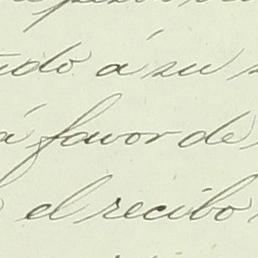 á su
á favor de
el recibo